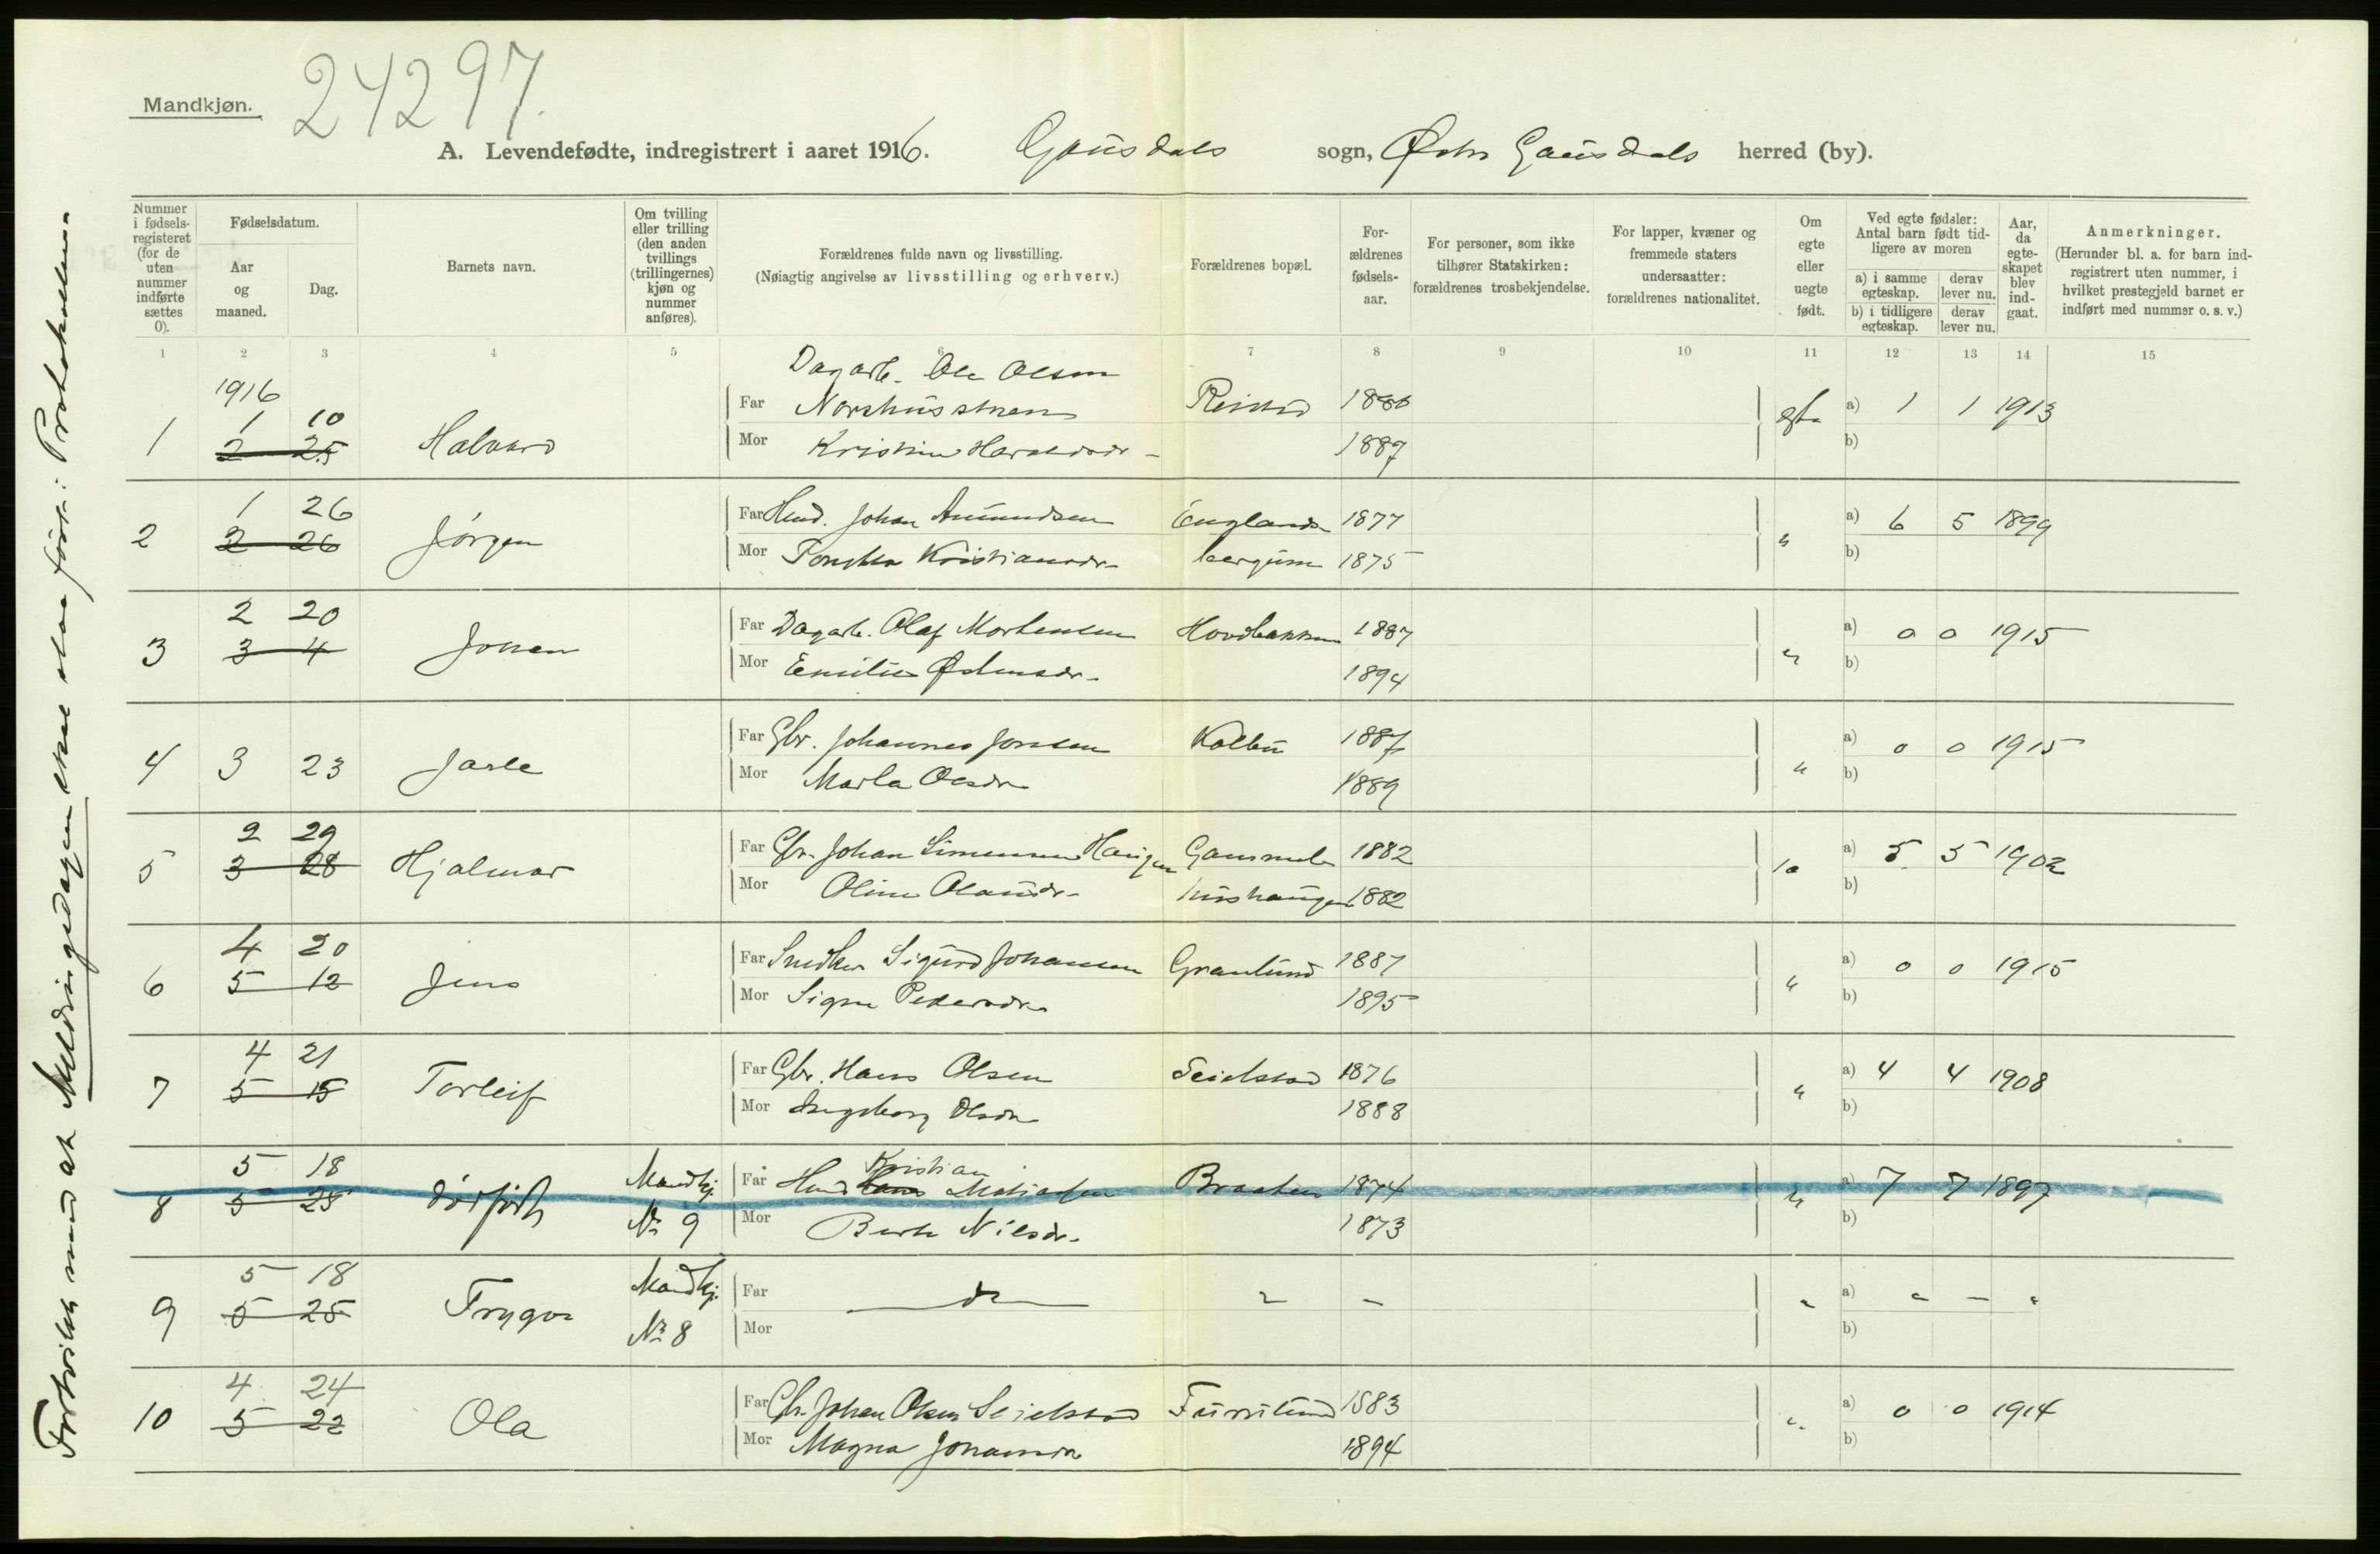 Mandkjøn.
24297.
A. Levendefødte, indregistrert i aaret 1916. Gausdals sogn, Østre Gausdals herred (by).
Nummer i fødsels-registeret (for de uten nummer indførte sættes 0).
Fødselsdatum.
Aar og maaned.
Dag.
Barnets navn.
Om tvilling eller trilling (den anden tvillings (trillingernes) kjøn og nummer anføres).
Forældrenes fulde navn og livsstilling.
(Nøiagtig angivelse av livsstilling og erhverv.)
Forældrenes bopæl.
For-ældrenes fødsels-aar.
For personer, som ikke tilhører Statskirken: forældrenes trosbekjendelse.
For lapper, kvæner og fremmede staters undersaatter: forældrenes nationalitet.
Om egte eller uegte født.
Ved egte fødsler: Antal barn født tid-ligere av moren
a) i samme egteskap.
derav lever nu.
b) i tidligere egteskap.
derav lever nu.
Aar, da egte-skapet blev ind-gaat.
Anmerkninger.
(Herunder bl. a. for barn ind-registrert uten nummer, i hvilket prestegjeld barnet er indført med nummer o. s. v.)
1 2 3 4 5 6 7 8 9 10 11 12 13 14 15
1916
Dagarb. Ole Olsen
1 10
Far Norshusstuen 1886 a) 1 1 1913
1 2 25 Halvard egte
Mor Kristine Haraldsdr 1887 b)
1 26
Far Johan Amundsen Englands 1877 a) 6 5 1899
2 2 26 Jørgen "
Mor Kristiansdr. bergum 1875 b)
2 20
Far Dagarb. Olaf Mortensen Hovdbakken 1887 a) 0 0 1915
3 3 4 Johan "
Mor Emilie Østensdr. 1894 b)
Far Gbr. Johannes Jonsen Kolbu 1887 a) 0 0 1915
4 3 23 Jarle "
Mor Marla Olsdr 1889 b)
2 29
Far Gbr. Johan Simensen Haugen Gammel 1882 a) 5 5 1902
5 3 28 Hjalmar
Mor Oline Olausdr. hushaugen 1882 b)
4 20
Far Snedker Sigurd Johansen Granlund 1887 a) 0 0 1915
6 5 12 Jens "
Mor Signe Pedersdr 1895 b)
4 21
Far Gbr. Hans Olsen Seielstad 1876 a) 4 4 1908
7 5 15 Torleif "
Mor Ingeborg Olsdr 1888 b)
5 18 Mandkj. Kristian
Far Hmd Hans Matiasen Braaten 1874 a) 7 7 1897
8 5 25 dødfødt "
Nr 9 Mor Berte Nilsdr. 1873 b)
5 18 Mandkj.
Far do " - a) " - "
9 5 25 Trygve "
Nr 8 Mor b)
4 24
Far Gbr. Johan Olsen Seielstad Furulund 1883 a) 0 0 1914
10 5 22 Ola "
Mor Magna Johansdr 1894 b)
Forholdet med at Meldringsdagen skal staa først i Protokollen.